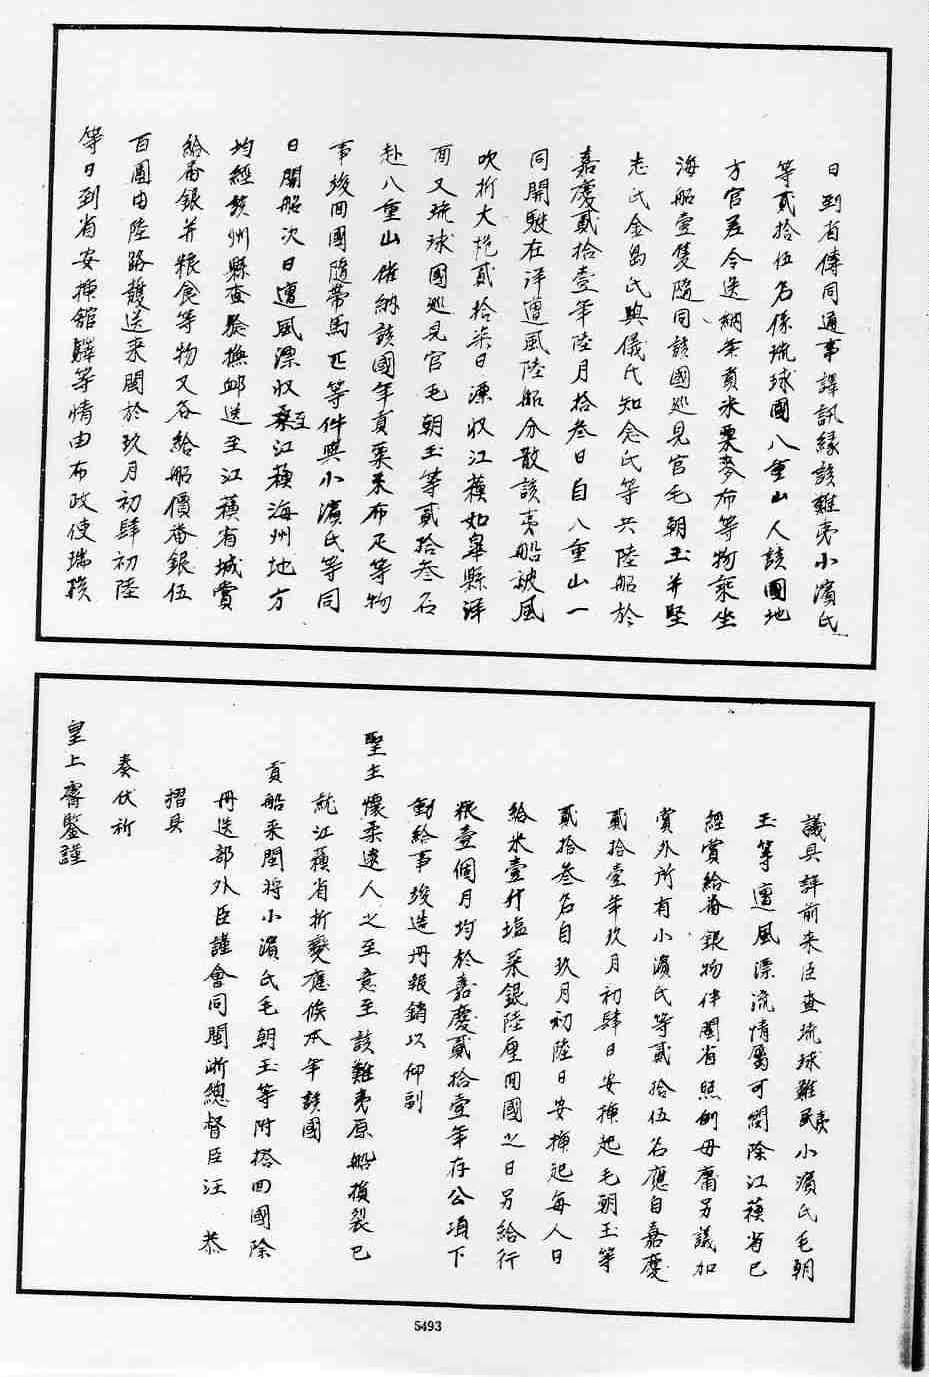 日到省傳同通事譯訊緣該難夷小濱氏
等貳拾伍名係琉球國八重山人該國地
方官差令送納年貢米粟麥布等物乘坐
海船壹隻隨同該國巡見官毛朝玉并堅
志氏金島氏與儀氏知念氏等共陸船於
嘉慶貳拾壹年陸月拾叁日自八重山一
同開駛在洋遭風陸船分散該夷船被風
吹折大桅貳拾柒日漂收江蘇如皋縣洋
面又琉球國巡見官毛朝玉等貳拾叁名
赴八重山催納該國年貢粟米布疋等物
事竣回國隨帶馬匹等件與小濱氏等同
日開船次日遭風漂收至江蘇海州地方
均經該州縣查驗撫卹送至江蘇省城賞
給番銀并粮食等物又各給船價番銀伍
百圓由陸路護送來閩於玖月初肆初陸
等日到省安揷館驛等情由布政使瑞揆
議具詳前來臣查琉球難夷小濱氏毛朝
玉等遭風漂流情屬可憫除江蘇省已
經賞給番銀物件閩省照例毋庸另議加
賞外所有小濱氏等貳拾伍名應自嘉慶
貳拾壹年玖月初肆日安揷起毛朝玉等
貳拾叁名自玖月初陸日安揷起每人日
給米壹升塩菜銀陸厘回國之日另給行
粮壹個月均於嘉慶貳拾壹年存公項下
動給事竣造冊報銷以仰副
聖主懷柔遠人之至意至該難夷原船損裂已
就江蘇省折變應俟本年該國
貢船來閩將小濱氏毛朝玉等附搭回國除
冊送部外臣謹會同閩浙總督臣汪 恭
摺具
奏伏祈
皇上睿鑒謹
5493